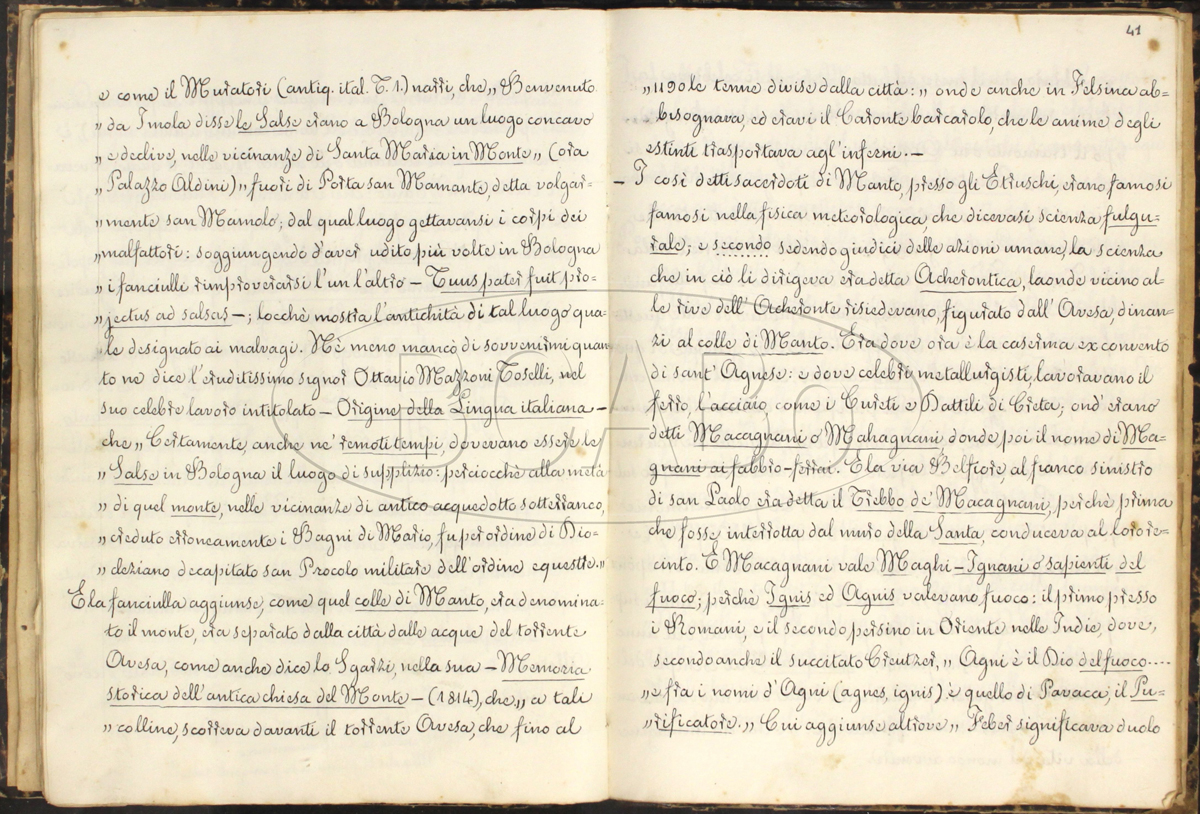 e come il Muratori (antiq. ital. T. 1.) narri, che „ Benvenuto
„ da Imola disse le Salse erano a Bologna un luogo concavo
„ e declive, nelle vicinanze di Santa Maria in Monte „ (ora
„ Palazzo Aldini) „ fuori di Porta san Mamante, detta volgar=
„ mente san Mamolo; dal qual luogo gettavansi i corpi dei
„ malfattori: soggiungendo d'aver udito più volte in Bologna
„ i fanciulli rimproverarsi l'un l'altro — Tuus pater fuit pro=
„ jectus ad salsas —; locchè mostra l'antichità di tal luogo qua=
„ le designato ai malvagi. Nè meno mancò di sovvenirmi quan
to ne dice l'eruditissimo signor Ottavio Mazzoni Toselli, nel
suo celebre lavoro intitolato — Origine della Lingua italiana —
che „ Certamente, anche ne' remoti tempi, dovevano essere le
„ Salse in Bologna il luogo di supplizio: perciocchè alla metà
„ di quel monte, nelle vicinanze di antico acquedotto sotterraneo,
„ creduto erroneamente i Bagni di Mario, fu per ordine di Dio=
„ cleziano decapitato san Procolo militare dell'ordine equestre. „
E la fanciulla aggiunse, come quel colle di Manto, era denomina=
to il monte, era separato dalla città dalle acque del torrente
Avesa, come anche dice lo Sgarzi, nella sua — Memoria
storica dell'antica chiesa del Monte — (1814), che „ a tali
„ colline, scorreva davanti il torrente Avesa, che fino al
41
„ 1190 le tenne divise dalla città: „ onde anche in Felsina ab=
bisognava, ed eravi il Caronte barcarolo, che le anime degli
estinti trasportava agl'inferni. —
— I così detti sacerdoti di Manto, presso gli Etruschi, erano famosi
famosi nella fisica meteorologica, che dicevasi scienza fulgu=
rale; e secondo sedendo giudici delle azioni umane, la scienza
che in ciò li dirigeva era detta Acherontica, laonde vicino al=
le rive dell'Acheronte risiedevano, figurato dall'Avesa, dinan=
zi al colle di Manto. Era dove ora è la caserma ex convento
di sant'Agnese: e dove celebri metallurgisti, lavoravano il
ferro, l'acciaio, come i Cureti e Dattili di Creta; ond'erano
detti Macagnani o Mahagnani donde poi il nome di Ma=
gnani ai fabbro-ferrai. E la via Belfiore, al fianco sinistro
di san Paolo era detta il Trebbo de' Macagnani, perchè prima
che fosse interrotta dal muro della Santa, conduceva al loro re=
cinto. E Macagnani vale Maghi — Ignani o sapienti del
fuoco; perchè Ignis ed Agnis valevano fuoco: il primo presso
i Romani, e il secondo persino in Oriente nelle Indie, dove,
secondo anche il succitato Creutzer, „ Agni è il Dio del fuoco....
„ e fra i nomi d'Agni (agnes, ignis) è quello di Pavaca, il Pu=
„ rificatore. „ Cui aggiunse altrove „ Feber significava duolo